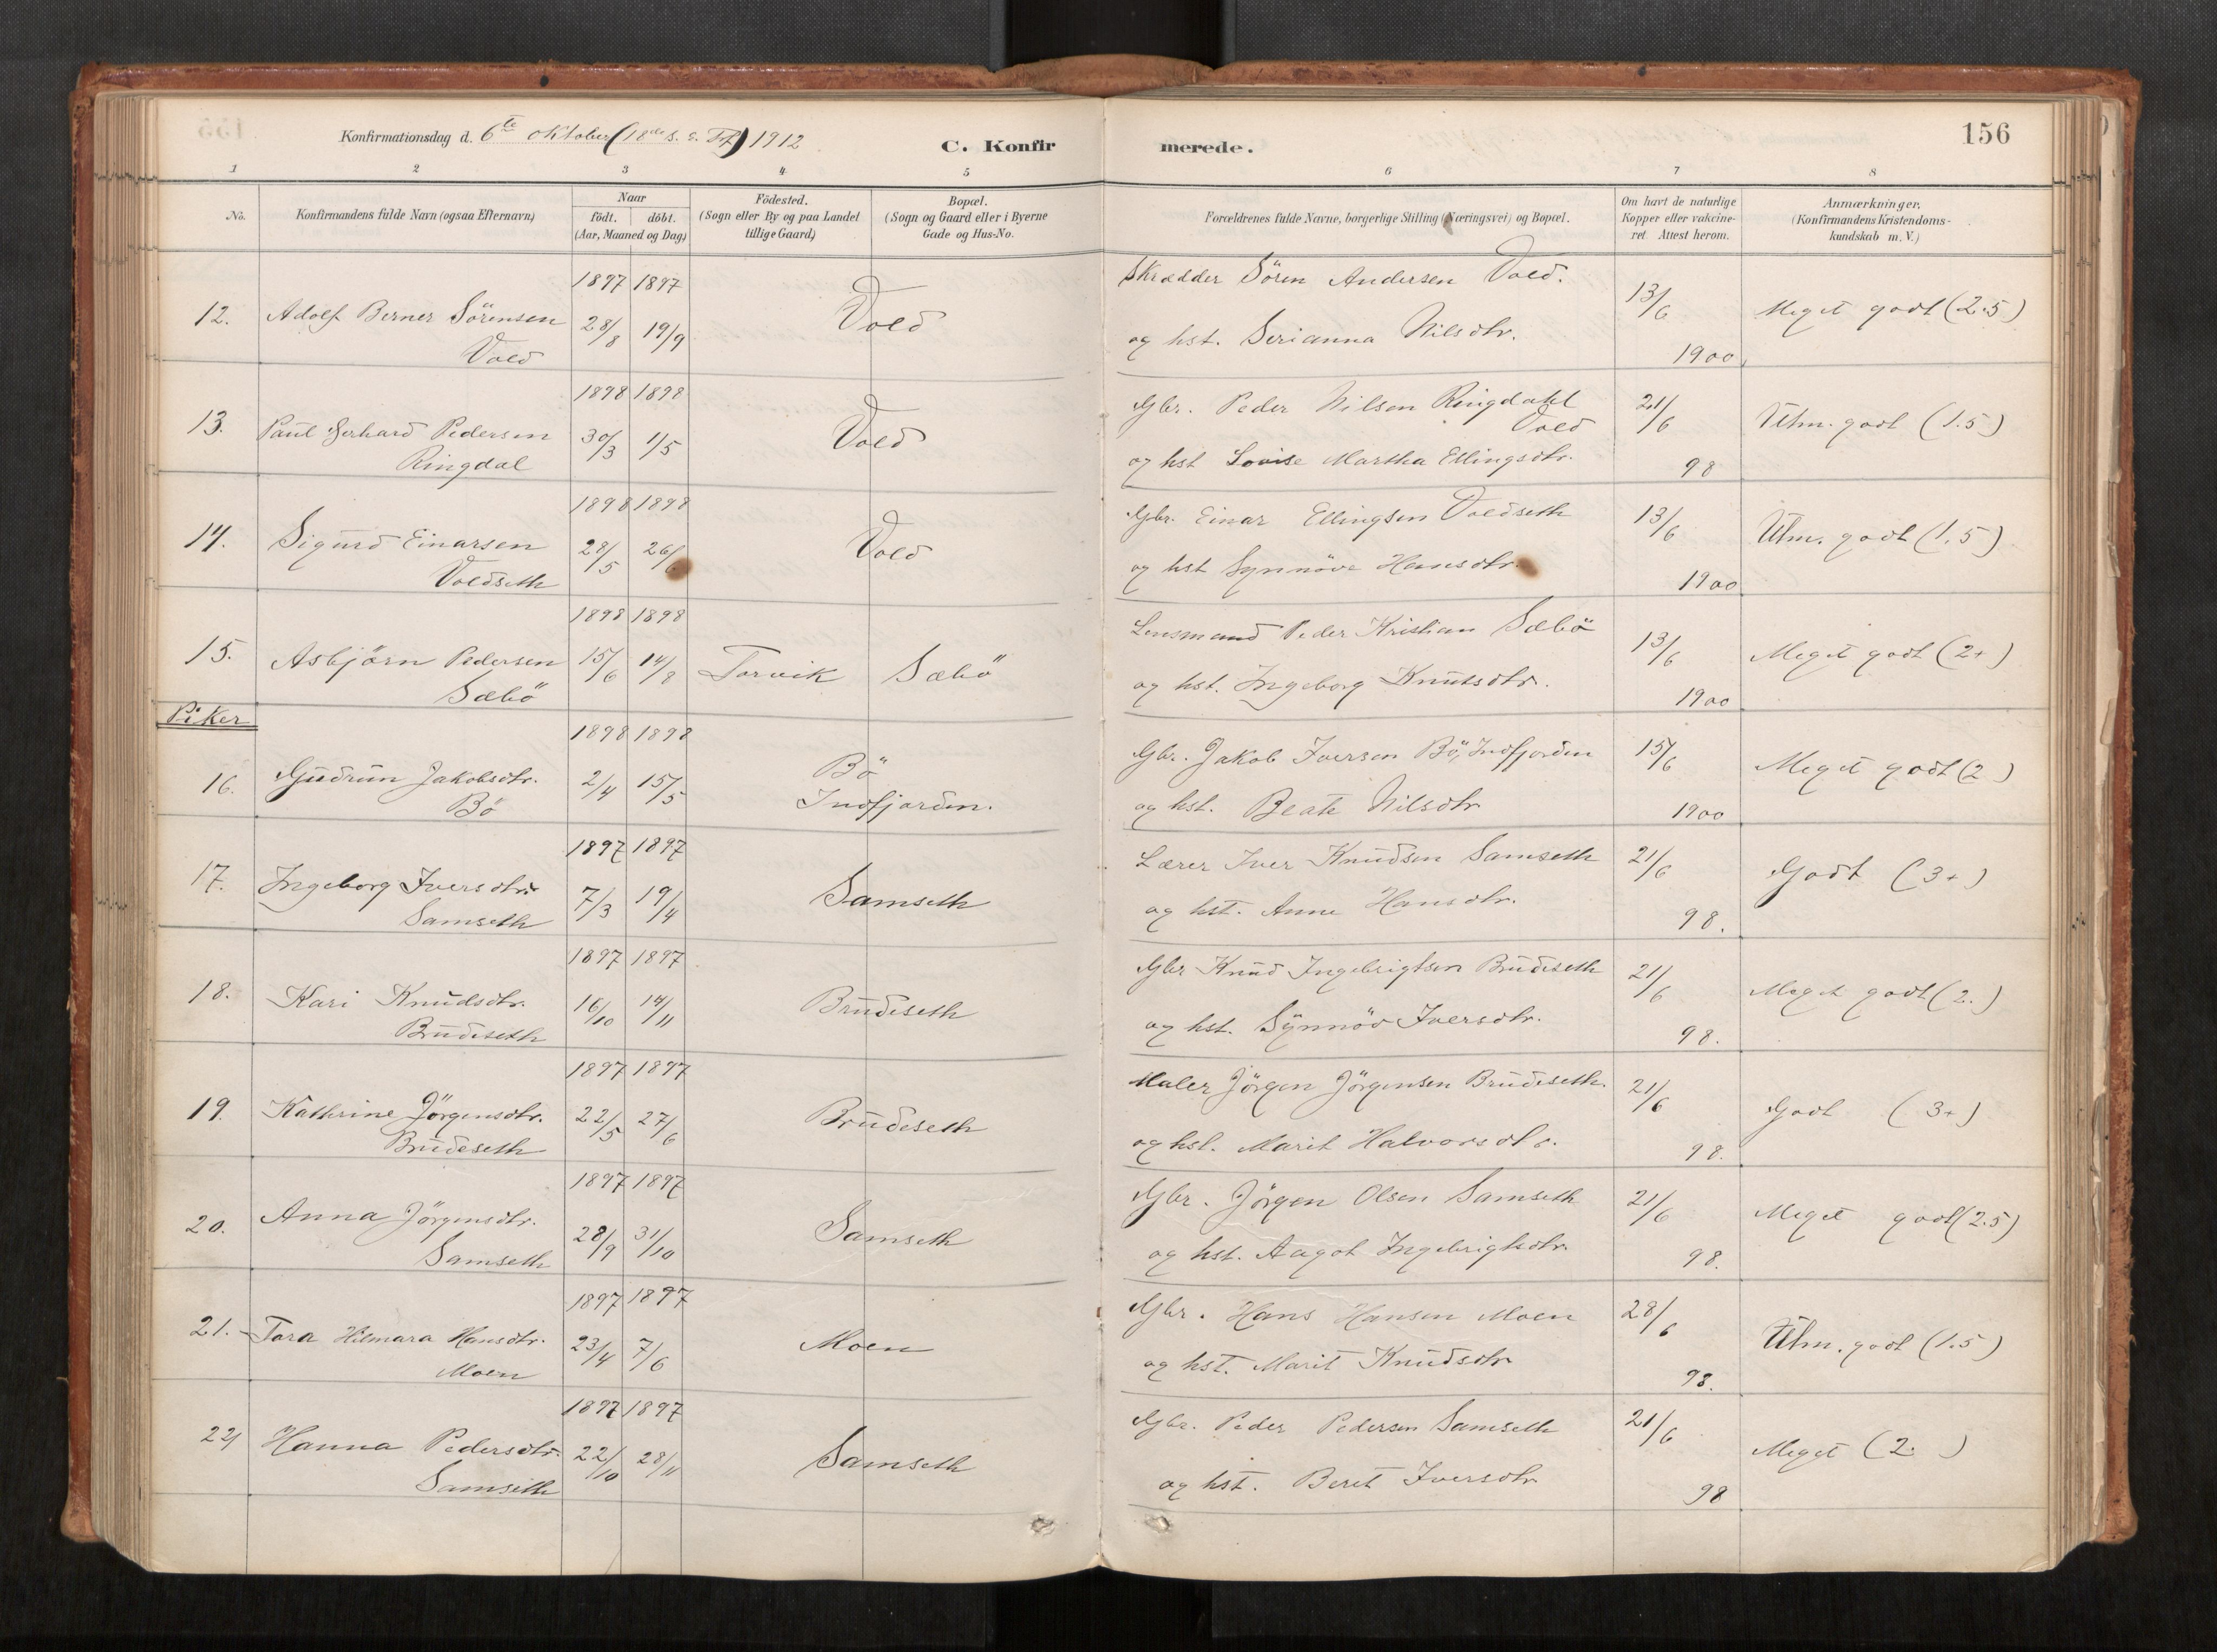 Konfirmationsdag d. 6te oktober (18de s. e. Trf) 1912
C. Konfirmerede.
156
1 2 3 4 5 6 7 8
No.
Konfirmandens fulde Navn (ogsaa Efternavn)
Naar
födt. döbt.
(Aar, Maaned og Dag)
Födested.
(Sogn eller By og paa Landet
tillige Gaard)
Bopæl.
(Sogn og Gaard eller i Byerne
Gade og Hus-No.
Forældrenes fulde Navne, borgerlige Stilling (Næringsvei) og Bopæl.
Om havt de naturlige
Kopper eller vakcine-
ret. Attest herom.
Anmærkninger.
(Konfirmandens Kristendoms-
kundskab m. V.)
1897 1897 Skrædder Sören Andersen Vold. 13/6
12. Adolf Berner Sörensen 28/8 19/9 Vold Meget godt (2.5)
Vold og hst. Serianna Nilsdtr. 1900
1898 1898 Gbr. Peder Nilsen Ringdahl 21/6
13. Paul Gerhard Pedersen 30/3 1/5 Vold Vold Utm. godt (1.5)
Ringdal og hst Lovise Martha Ellingsdtr. 98
1898 1898 Gbr. Einar Ellingsen Voldseth 13/6
14. Sigurd Einarsen 28/5 26/6 Vold Utm. godt (1.5)
Voldseth og hst Synnöve Hansdtr. 1900
1898 1898 Lensmand Peder Kristian Sæbö 13/6
15. Asbjörn Pedersen 15/6 14/8 Torvik Sæbö Meget godt (2+)
Sæbö og hst. Ingeborg Knutsdtr. 1900
Piker
1898 1898 Gbr. Jakob Iversen Bö, Indfjorden 15/6
16. Gudrun Jakobsdtr. 2/4 15/5 Bö Meget godt (2 )
Bö Indfjorden. og hst. Beate Nilsdtr 1900
1897 1897 Lærer Iver Knudsen Samseth 21/6
17. Ingeborg Iversdtr. 7/3 19/4 Samseth Godt (3+)
Samseth og hst. Anne Hansdtr. 98.
1897 1897 Gbr Knud Ingebrigtsen Brudeseth 21/6
18. Kari Knudsdtr. 16/10 14/11 Brudeseth Meget godt (2.)
Brudeseth og hst. Synnöv Iversdtr. 98.
1897 1897 Maler Jörgen Jörgensen Brudeseth. 21/6
19. Kathrine Jörgensdtr. 22/5 27/6 Brudeseth Godt (3+)
Brudeseth og hst. Marit Halvorsdtr. 98.
1897 1897 Gbr. Jörgen Olsen Samseth 21/6
20. Anna Jörgensdtr. 28/9 31/10 Samseth Meget godt (2.5)
Samseth og hst. Aagot Ingebrigtsdtr. 98.
1897 1897 Gbr. Hans Hansen Moen 28/6
21. Tora Hilmara Hansdtr. 23/4 7/6 Moen Utm. godt (1.5)
Moen og hst. Marit Knudsdtr 98.
1897 1897 Gbr. Peder Pedersen Samseth 21/6
22 Hanna Pedersdtr. 22/10 28/11 Samseth Meget (2. )
Samseth og hst. Beret Iversdtr 98